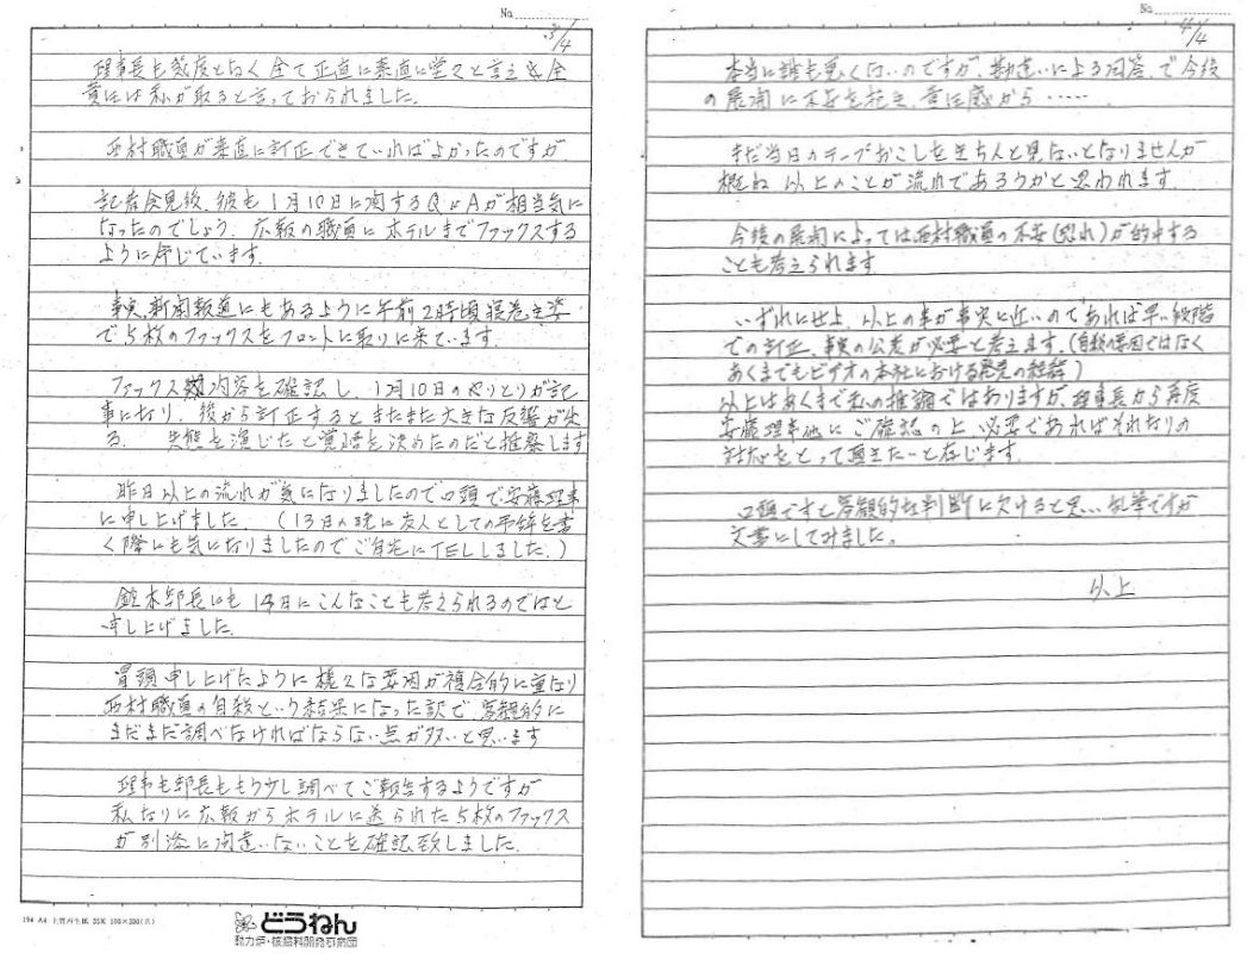 No.
3/4
理事長も幾度となく全て正直に素直に堂々と言え、全
責任は私が取ると言っておられました。
西村職員が素直に訂正できていればよかったのですが、
記者会見後、彼も1月10日に関するQ&Aが相当気に
なったのでしょう。広報の職員にホテルまでファックスする
ように命じています。
事実、新聞報道にもあるように午前2時頃寝巻き姿
で5枚のファックスをフロントに取りに来ています。
ファックス内容を確認し、1月10日のやりとりが記
事になり、後から訂正するとまたまた大きな反響が出
る。失態を演じたと覚悟を決めたのだと推察します
昨日以上の流れが気になりましたので口頭で安藤理事
に申し上げました。(13日の晩に友人としての手紙を書
く際にも気になりましたのでご自宅にTELしました。)
鈴木部長にも14日にこんなことも考えられるのではと
申し上げました。
冒頭申し上げたように様々な要因が複合的に重なり
西村職員の自殺という結果になった訳で、客観的に
まだまだ調べなければならない点が多いと思います
理事も部長ももう少し調べてご報告するようですが
私なりに広報からホテルに送られた5枚のファックス
が別添に間違いないことを確認致しました。
194 A4
どうねん
動力炉・核燃料開発事業団
No.
4/4
本当に誰も悪くないのですが、勘違いによる回答で今後
の展開に不安を抱き、責任感から……
まだ当日のテープおこしをきちんと見ないとなりませんが
概ね以上のことが流れであろうかと思われます。
今後の展開によっては西村職員の不安(恐れ)が的中する
ことも考えられます
いずれにせよ、以上の事が事実に近いのであれば早い段階
での訂正、事実の公表が必要と考えます。(自殺の要因ではなく
あくまでもビデオの本社における発見の経緯)
以上はあくまで私の推測ではありますが、理事長から再度
安藤理事他にご確認の上必要であればそれなりの
対応をとって頂きたいと存じます。
口頭ですと客観的な判断に欠けると思い、乱筆ですが
文書にしてみました。
以上